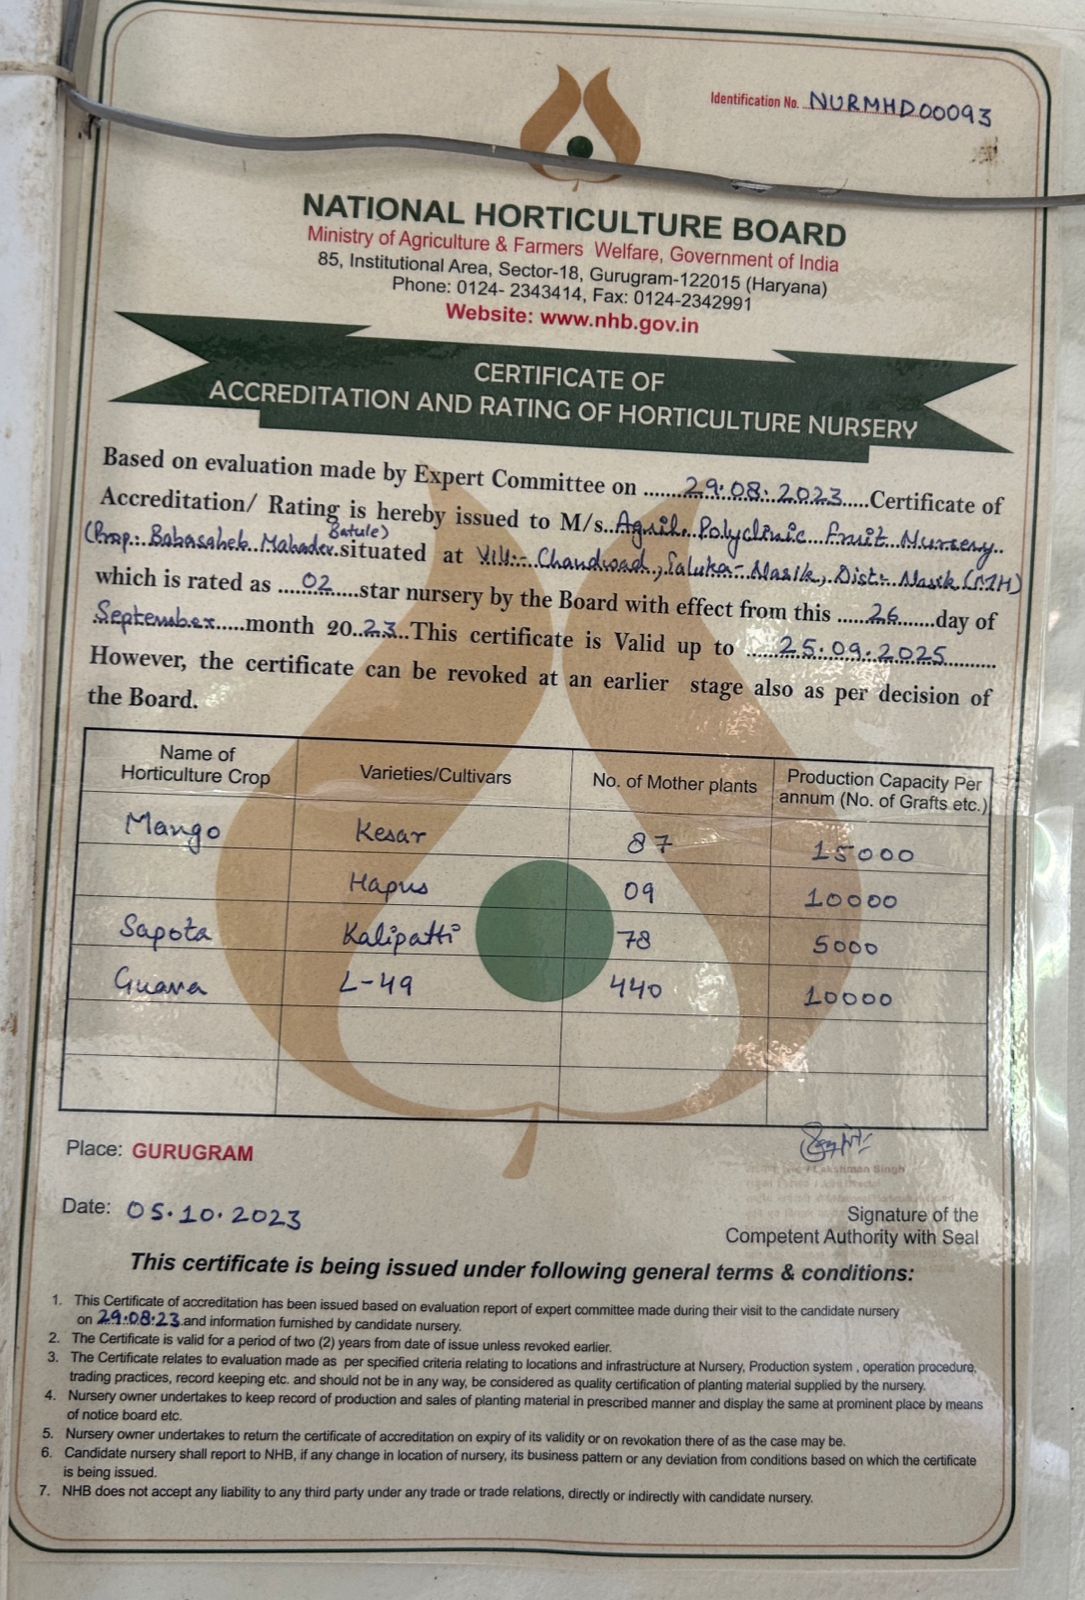 Identification No. NURMHD00093
NATIONAL HORTICULTURE BOARD
Ministry of Agriculture & Farmers Welfare, Government of India
85, Institutional Area, Sector-18, Gurugram-122015 (Haryana)
Phone: 0124- 2343414, Fax: 0124-2342991
Website: www.nhb.gov.in
CERTIFICATE OF
ACCREDITATION AND RATING OF HORTICULTURE NURSERY
Based on evaluation made by Expert Committee on ......29.08.2023.....Certificate of
Accreditation/ Rating is hereby issued to M/s.. Polyclinic Fruit Nursery
(Prop.: Babasaheb Mahadev Batule) situated at Vill:- Chandwad, Taluka- Nasik, Dist:- Nasik (MH)
which is rated as ......02......star nursery by the Board with effect from this ......26.......day of
September.....month 20..23..This certificate is Valid up to ......25.09.2025..........
However, the certificate can be revoked at an earlier stage also as per decision of
the Board.
Name of Horticulture Crop Varieties/Cultivars No. of Mother plants Production Capacity Per annum (No. of Grafts etc.)
Mango Kesar 87 15000
Hapus 09 10000
Sapota Kalipatti 78 5000
Guava L-49 440 10000
Place: GURUGRAM
Lakshman Singh
Date: 05.10.2023
Signature of the
Competent Authority with Seal
This certificate is being issued under following general terms & conditions:
1. This Certificate of accreditation has been issued based on evaluation report of expert committee made during their visit to the candidate nursery
on 29.08.23 and information furnished by candidate nursery.
2. The Certificate is valid for a period of two (2) years from date of issue unless revoked earlier.
3. The Certificate relates to evaluation made as per specified criteria relating to locations and infrastructure at Nursery, Production system , operation procedure,
trading practices, record keeping etc. and should not be in any way, be considered as quality certification of planting material supplied by the nursery.
4. Nursery owner undertakes to keep record of production and sales of planting material in prescribed manner and display the same at prominent place by means
of notice board etc.
5. Nursery owner undertakes to return the certificate of accreditation on expiry of its validity or on revokation there of as the case may be.
6. Candidate nursery shall report to NHB, if any change in location of nursery, its business pattern or any deviation from conditions based on which the certificate
is being issued.
7. NHB does not accept any liability to any third party under any trade or trade relations, directly or indirectly with candidate nursery.